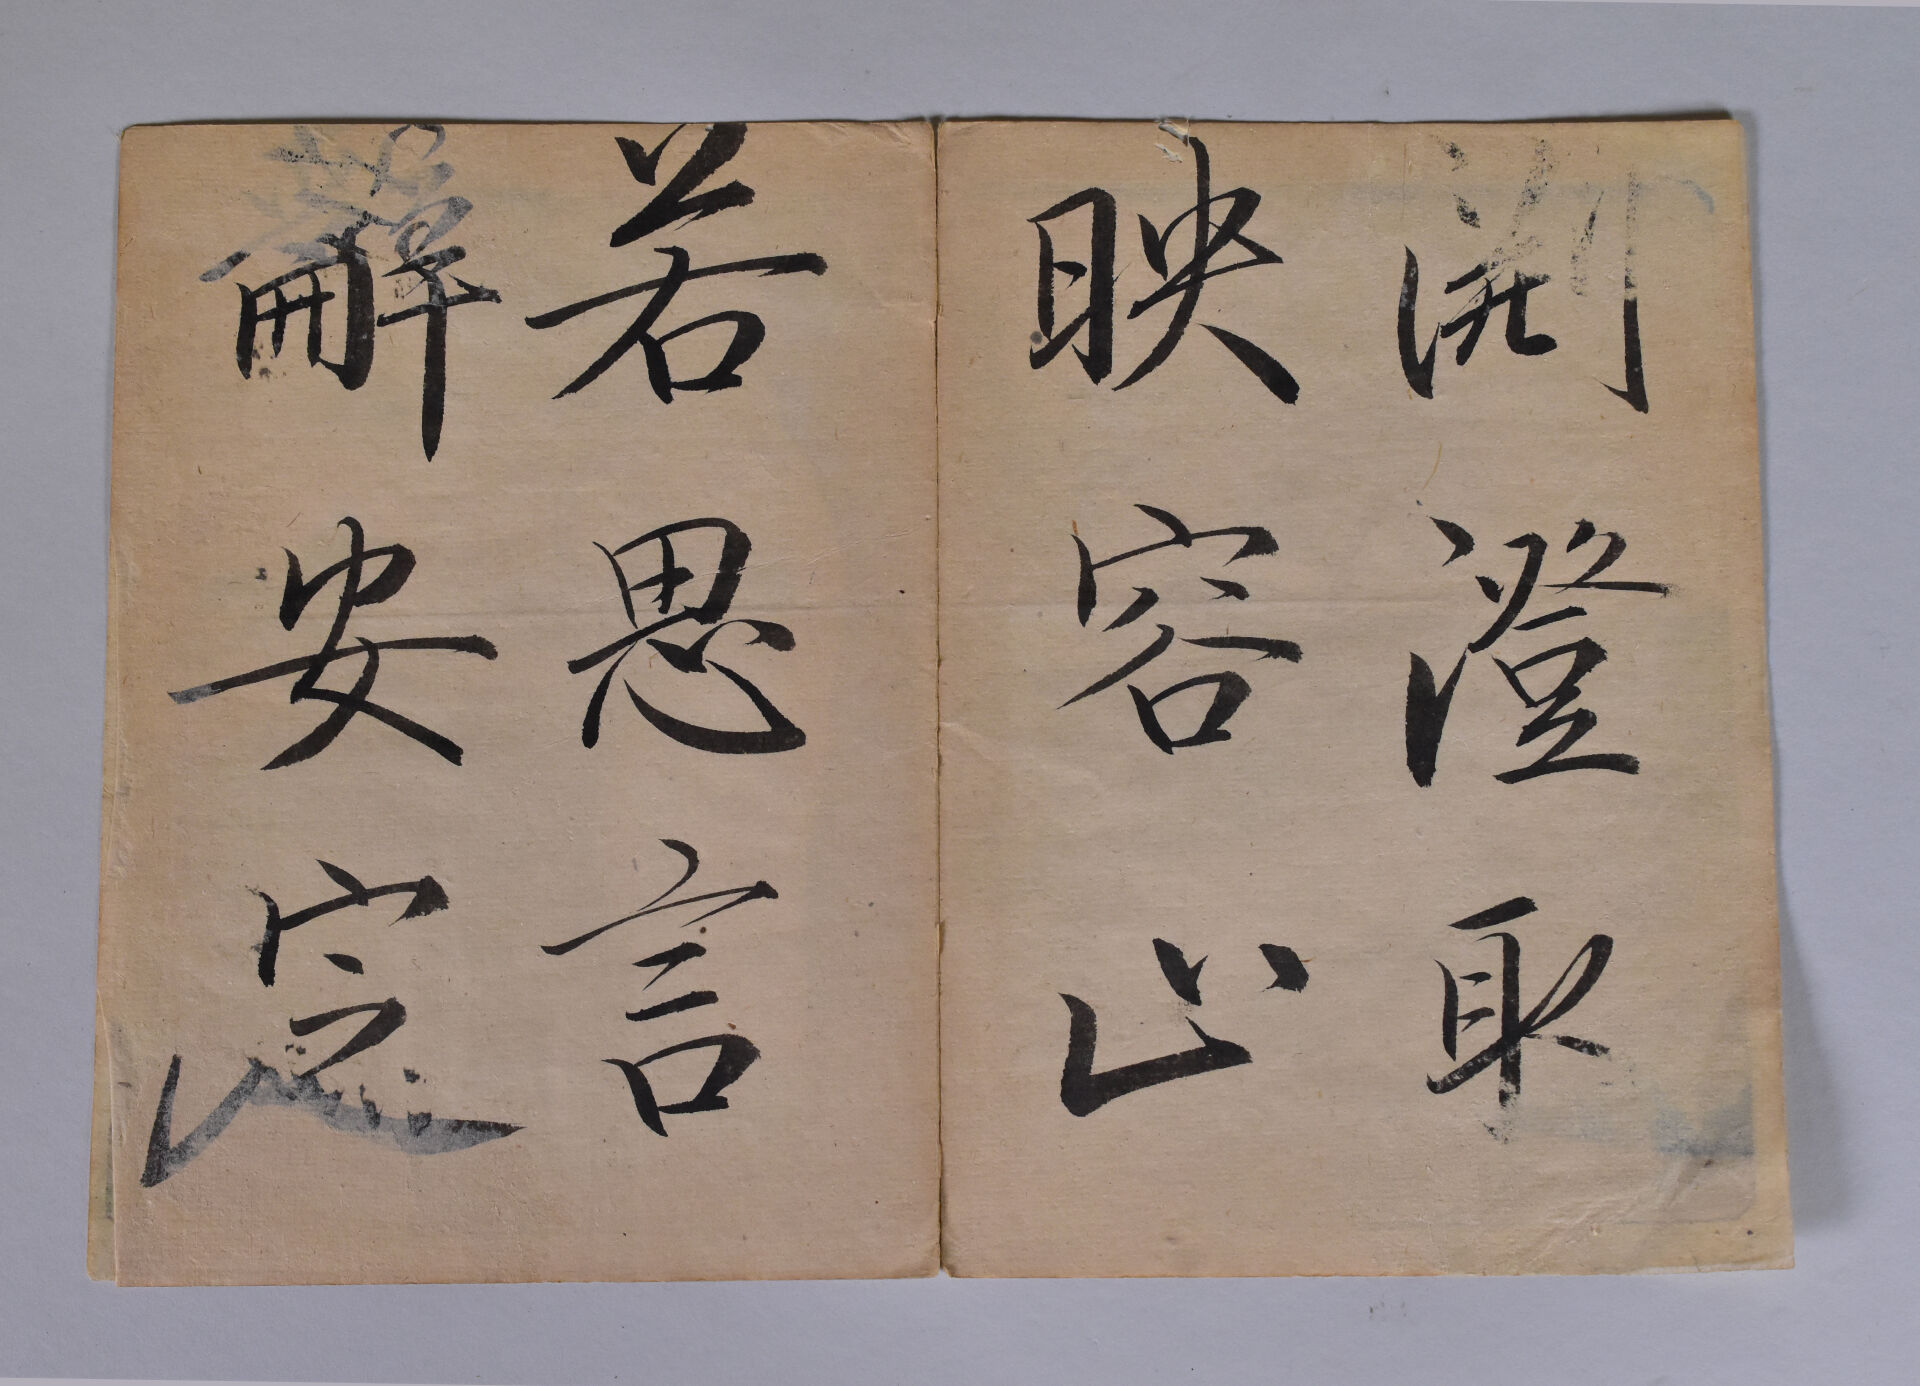 渊澄取
映容止
若思言
辭安定